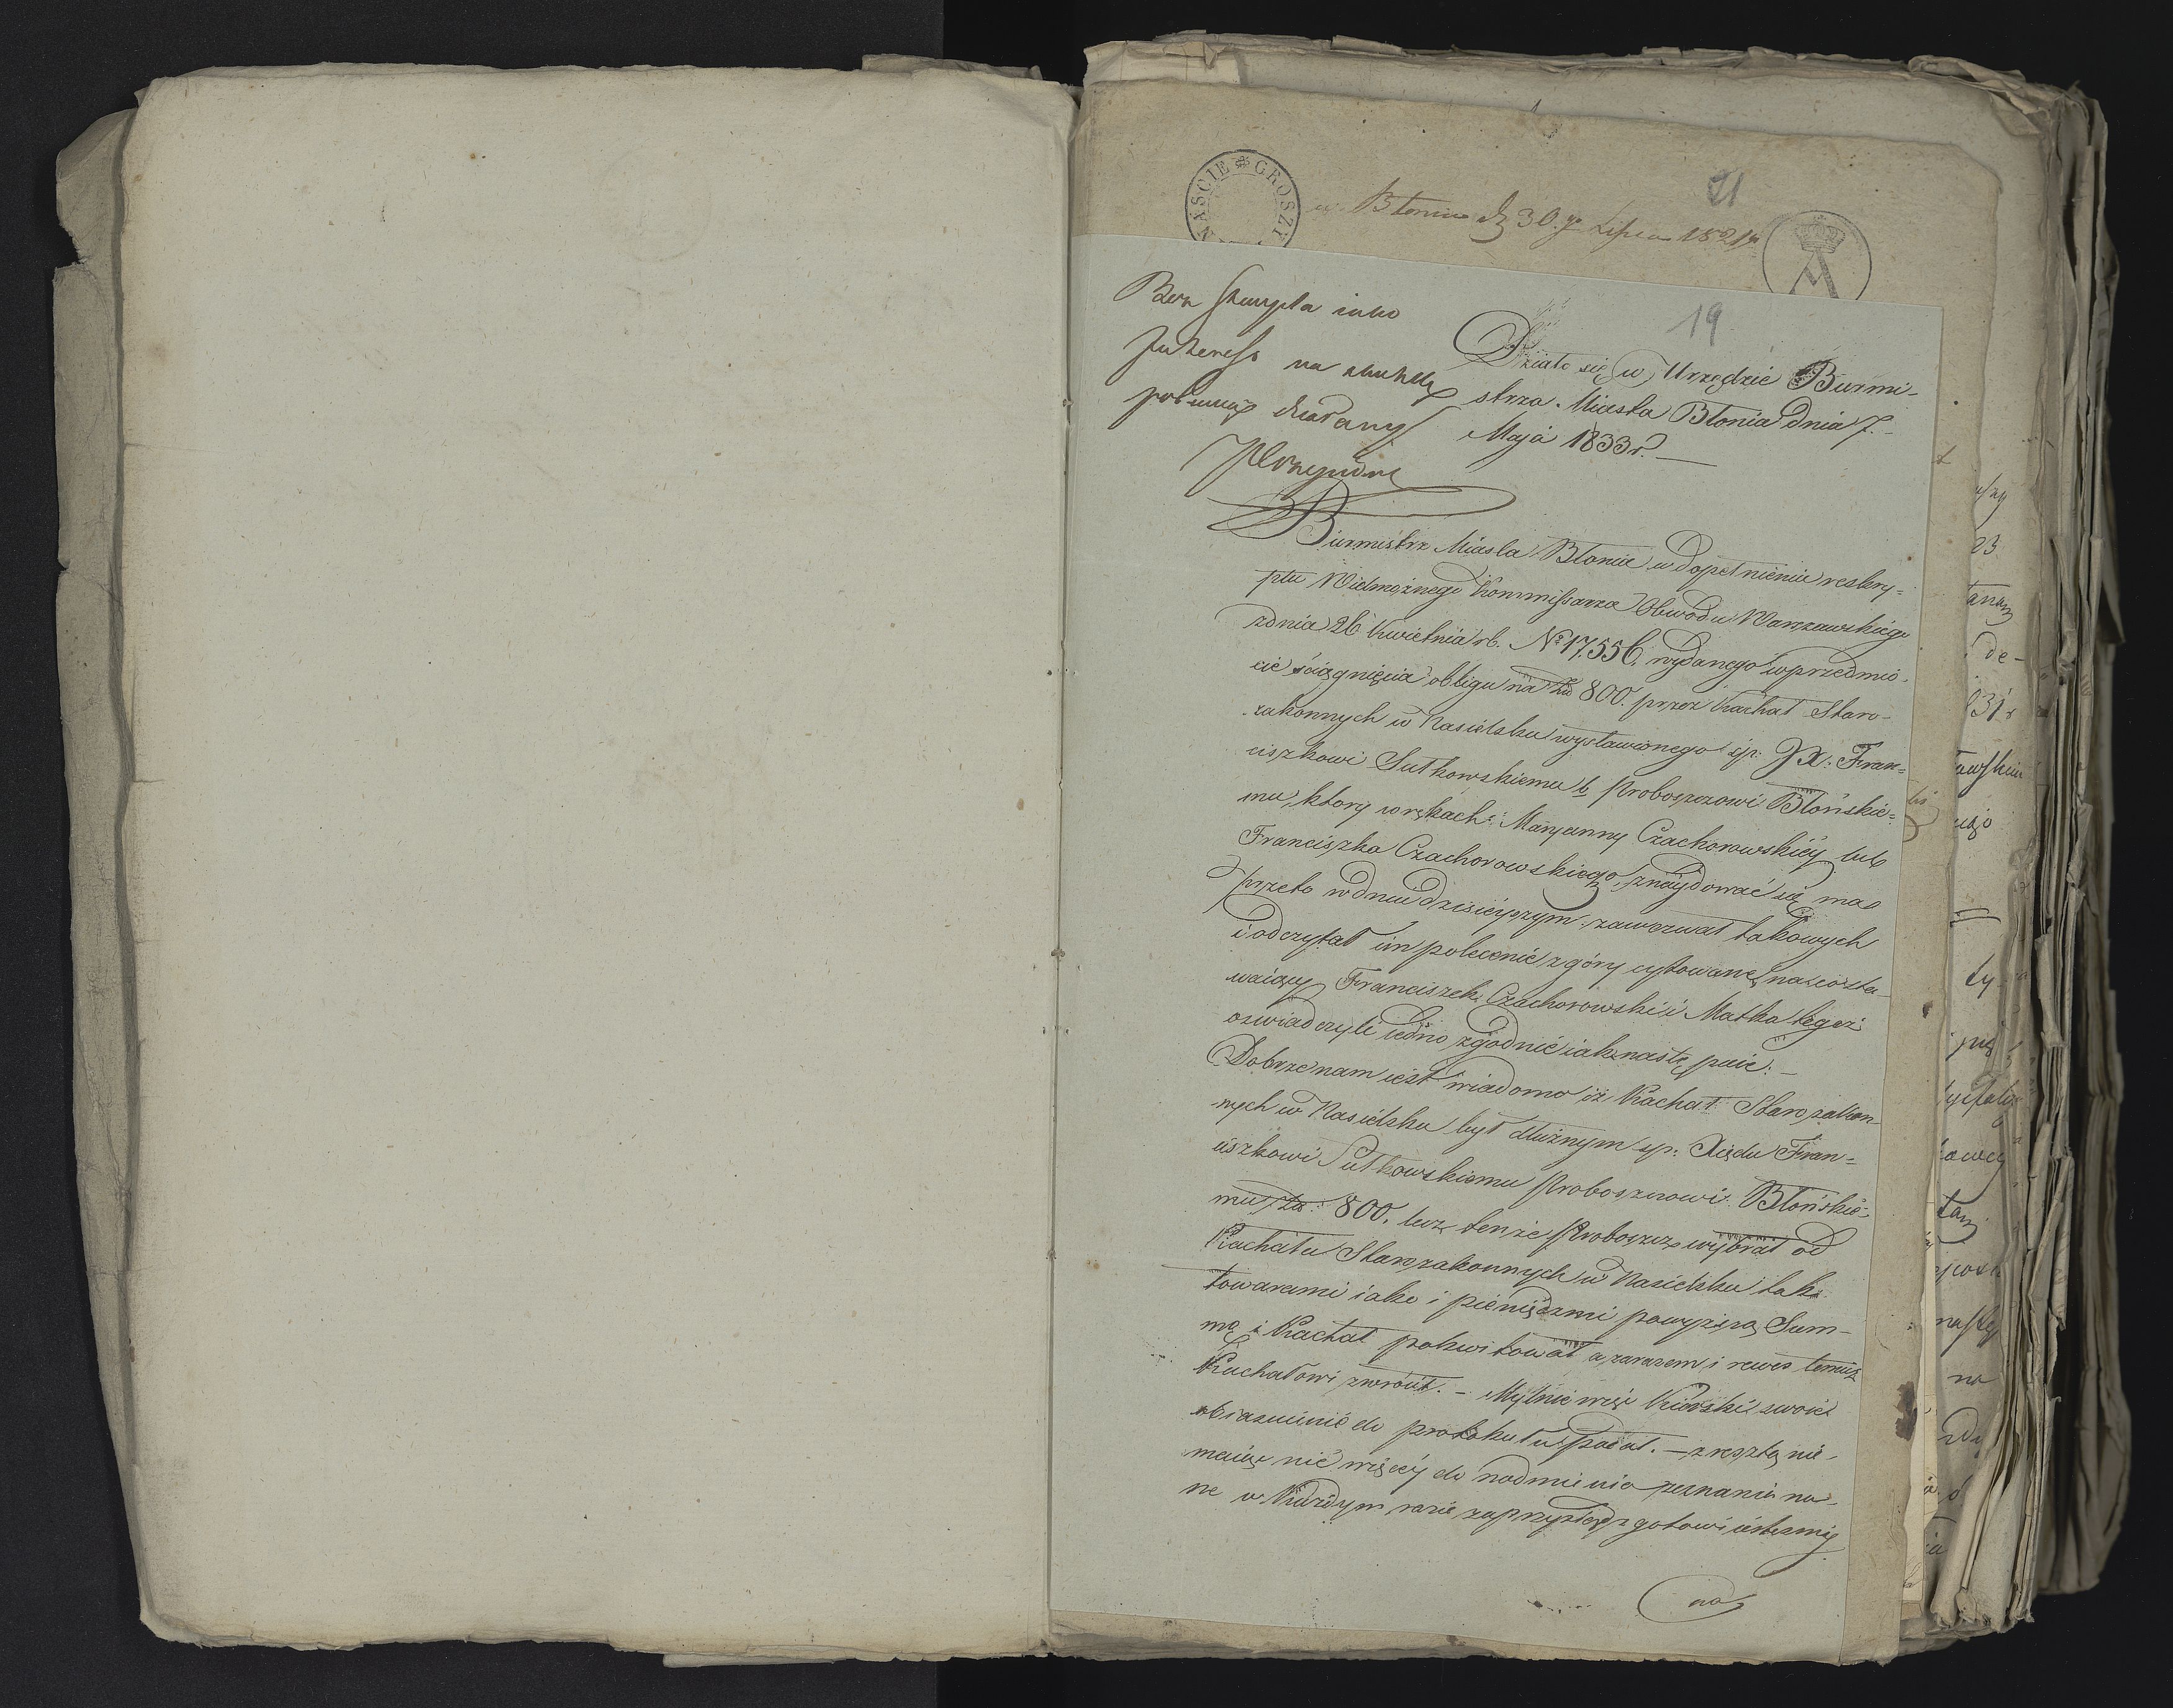 NAŚCIE GROSZY
21
w Błoniu d 30go Lipca 1821r
19
Bez stempla iako
Interess na skutek
polecenia
Działo się w Urzędzie Burmi-
strza Miasta Błonia dnia 7.
Maja 1833 r. —
Burmistrz Miasta Błonie w dopełnieniu reskry=
ptu Wielmożnego Kommissarza Obwodu Warszawskiego
z dnia 26 Kwietnia rb. No 17,556. wydanego w przedmio-
cie ściągnięcia obligu na Zło 800. przez Kachał Staro-
zakonnych w Nasielsku wystawionego śp. JX. Fran=
ciszkowi Sutkowskiemu b. Proboszczowi Błońskie=
mu, ktory w rękach Maryanny Czachorowskiéy lub
Franciszka Czachorowskiego, znaydować się ma
przeto w dniu dzisieyszym zawezwał takowych
i odczytał im polecenie z góry cytowane, na co sta-
waiący Franciszek Czachorowski i Matka tegoż
oswiadczyli iedno zgodnie iak następuie: —
Dobrze nam iest wiadomo iż Kachał Starozakon-
nych w Nasielsku był dłużnym śp. Xiędu Fran=
ciszkowi Sutkowskiemu Proboszczowi Błońskie-
mu Zło: 800. lecz tenże Proboszcz wybrał od
Kachału Starozakonnych w Nasielsku tak
towarami iako i pieniędzmi powyższą Sum-
mę i Kachał pokwitował a zarazem i rewes temuż
Kachałowi zwrócił. — Mylnie więc swoie
obiasnienie do protokułu podał. — zresztą nie-
maiąc nic więcéy do nadmienia zeznania na-
ne w każdym razie zaprzysiędz gotowi iestesmy
na